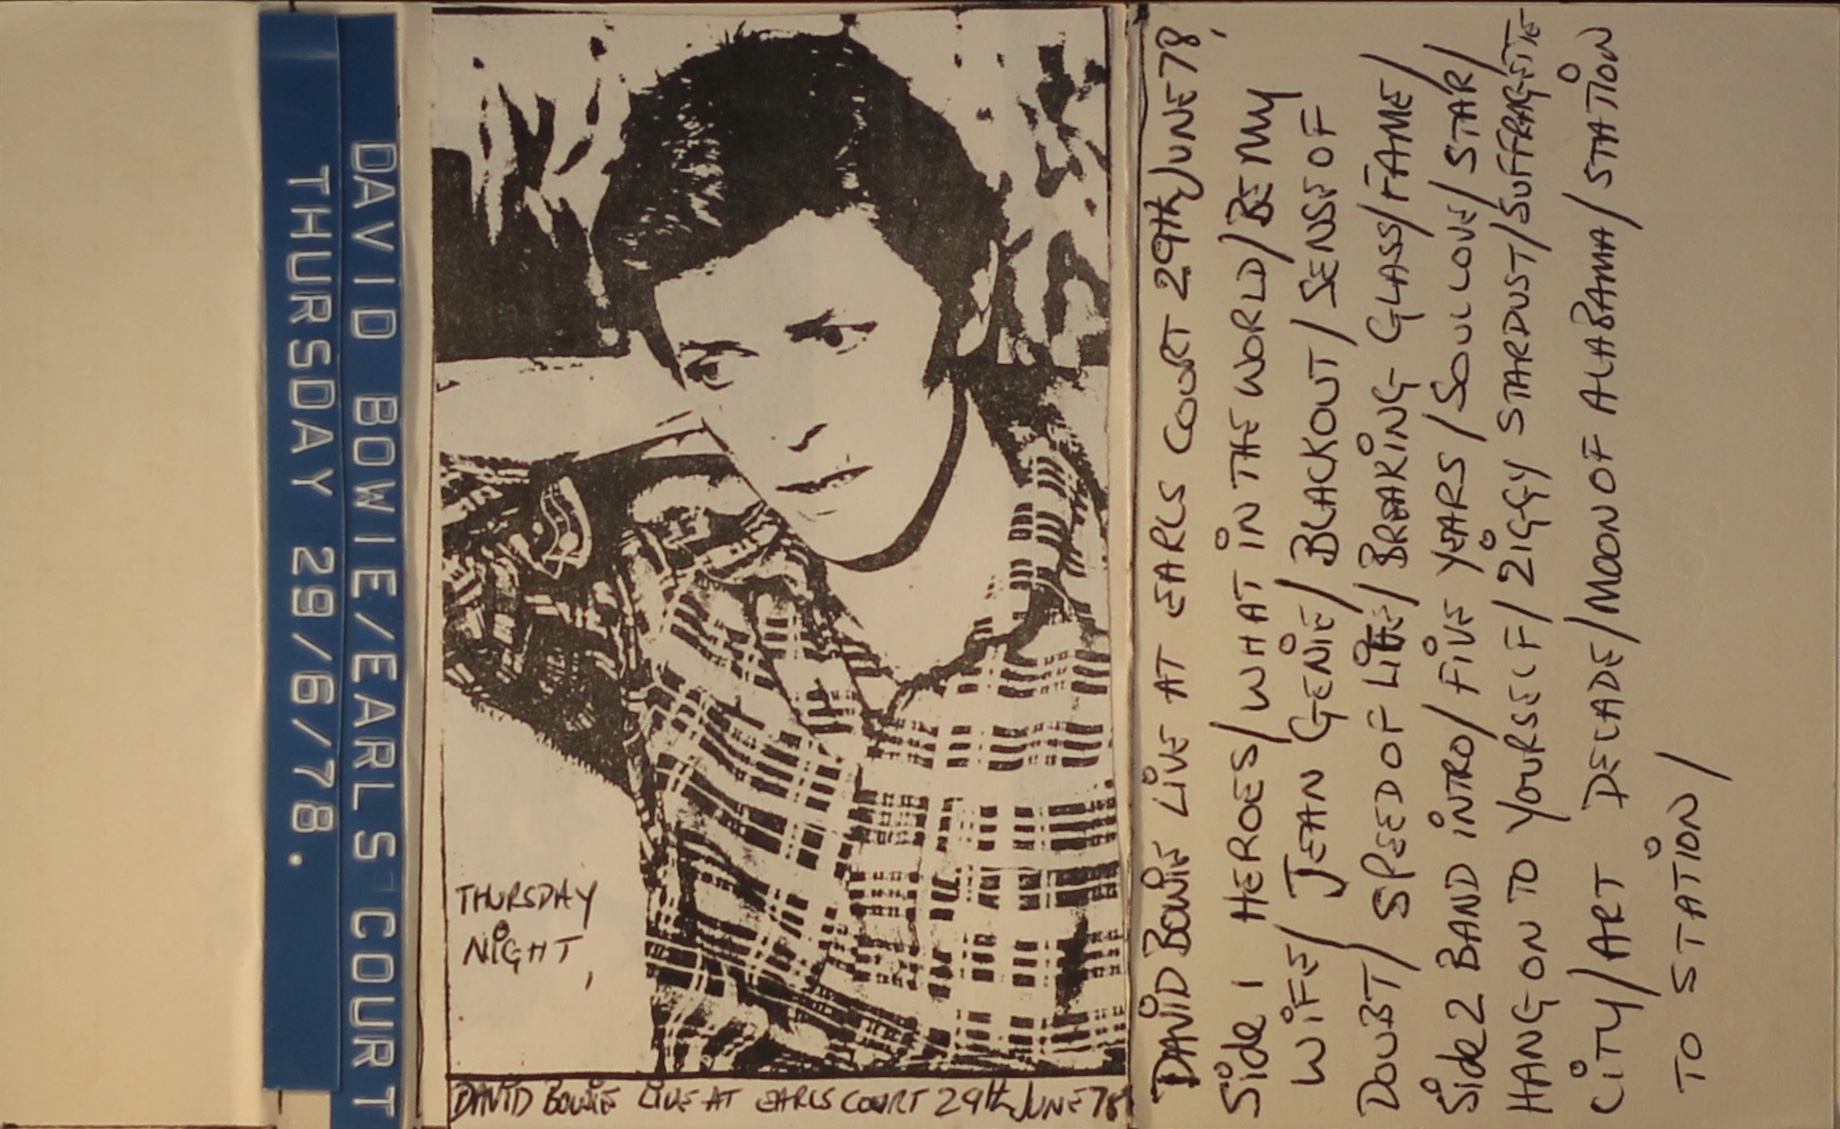 DAVID BOWIE/EARLS COURT
THURSDAY 29/6/78.
THURSDAY
NiGHT,
DAViD BOWiE LiVE AT EARLS COURT 29th JUNE 78
DAViD BOWiE LiVE AT EARLS COURT 29th JUNE 78,
Side 1 HEROES/WHAT iN THE WORLD/BE MY
WiFE/JEAN GENiE/BLACKOUT/SENSE OF
DOUBT/SPEED OF LiFE/BREAKiNG GLASS/FAME/
Side 2 BAND iNTRO/FiVE YEARS/SOUL LOVE/STAR/
HANG ON TO YOURSELF/ZiGGY STARDUST/SUFFRAGETTE
CiTY/ART DECADE/MOON OF ALABAMA/STATiON
TO STATiON/